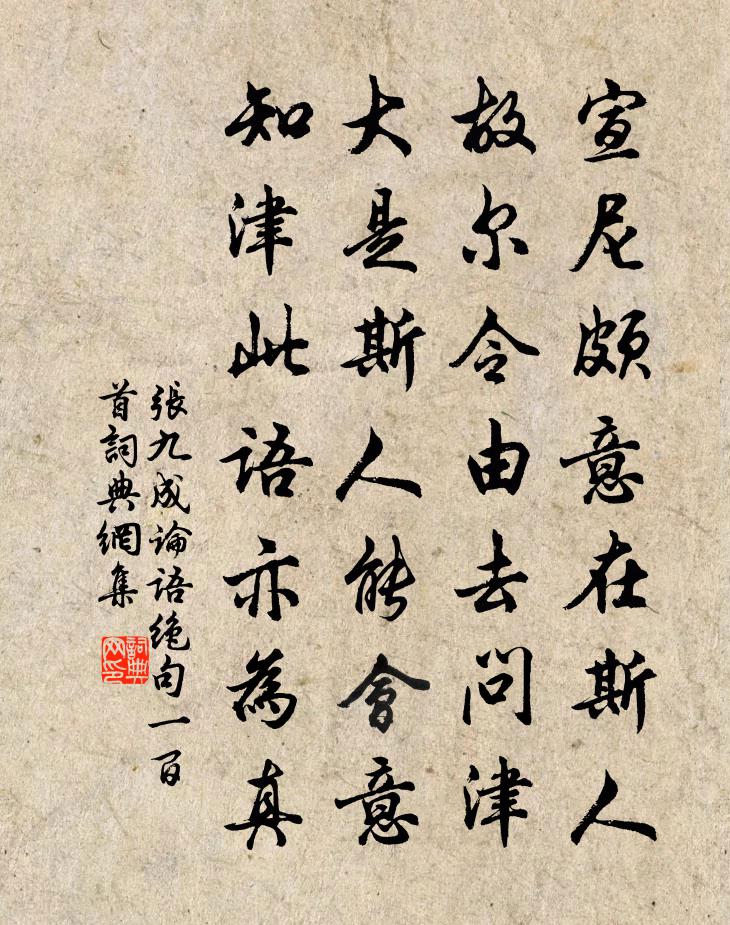 宣尼頗意在斯人
故尔令由去問津
大是斯人能會意
知津此語亦為真
張九成論語绝句一百
首詞典網集
詞典网印